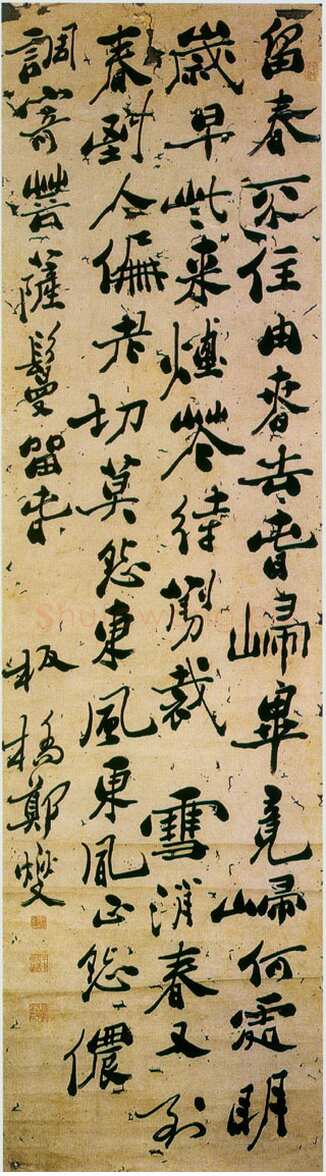 留春不住由春去春歸畢竟歸何處明
歲早些來煙花待剪裁雪消春又到
春到人偏老切莫怨東風東風正怨儂
調寄菩薩鬘留春 板橋鄭燮